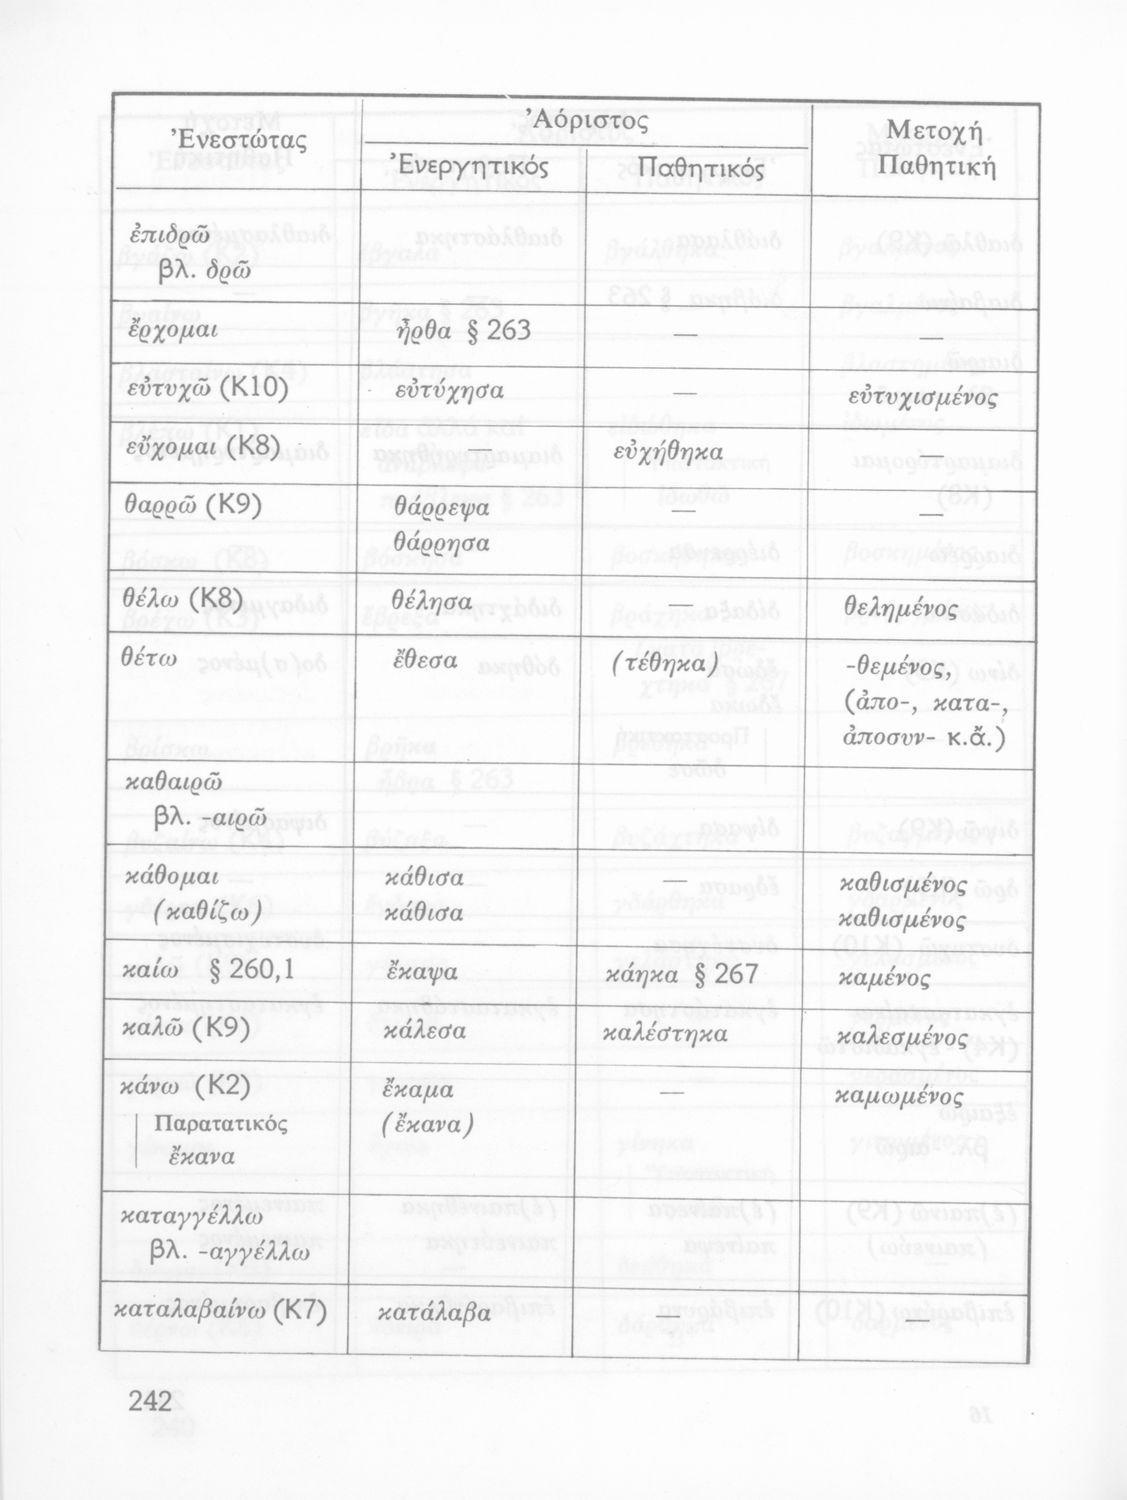 Ἐνεστώτας
Ἀόριστος
Μετοχή
Παθητική
Ἐνεργητικός Παθητικός
ἐπιδρῶ
βλ. δρῶ
ἔρχομαι ἦρθα § 263 — —
εὐτυχῶ (Κ10) εὐτύχησα — εὐτυχισμένος
εὔχομαι (Κ8) — εὐχήθηκα —
θαρρῶ (Κ9) θάρρεψα — —
θάρρησα
θέλω (Κ8) θέλησα — θελημένος
θέτω ἔθεσα (τέθηκα) -θεμένος,
(ἀπο-, κατα-,
ἀποσυν- κ.ἄ.)
καθαιρῶ
βλ. -αιρῶ
κάθομαι κάθισα — καθισμένος
(καθίζω) κάθισα καθισμένος
καίω § 260,1 ἔκαψα κάηκα § 267 καμένος
καλῶ (Κ9) κάλεσα καλέστηκα καλεσμένος
κάνω (Κ2) ἔκαμα — καμωμένος
Παρατατικός (ἔκανα)
ἔκανα
καταγγέλλω
βλ. -αγγέλλω
καταλαβαίνω (Κ7) κατάλαβα — —
242